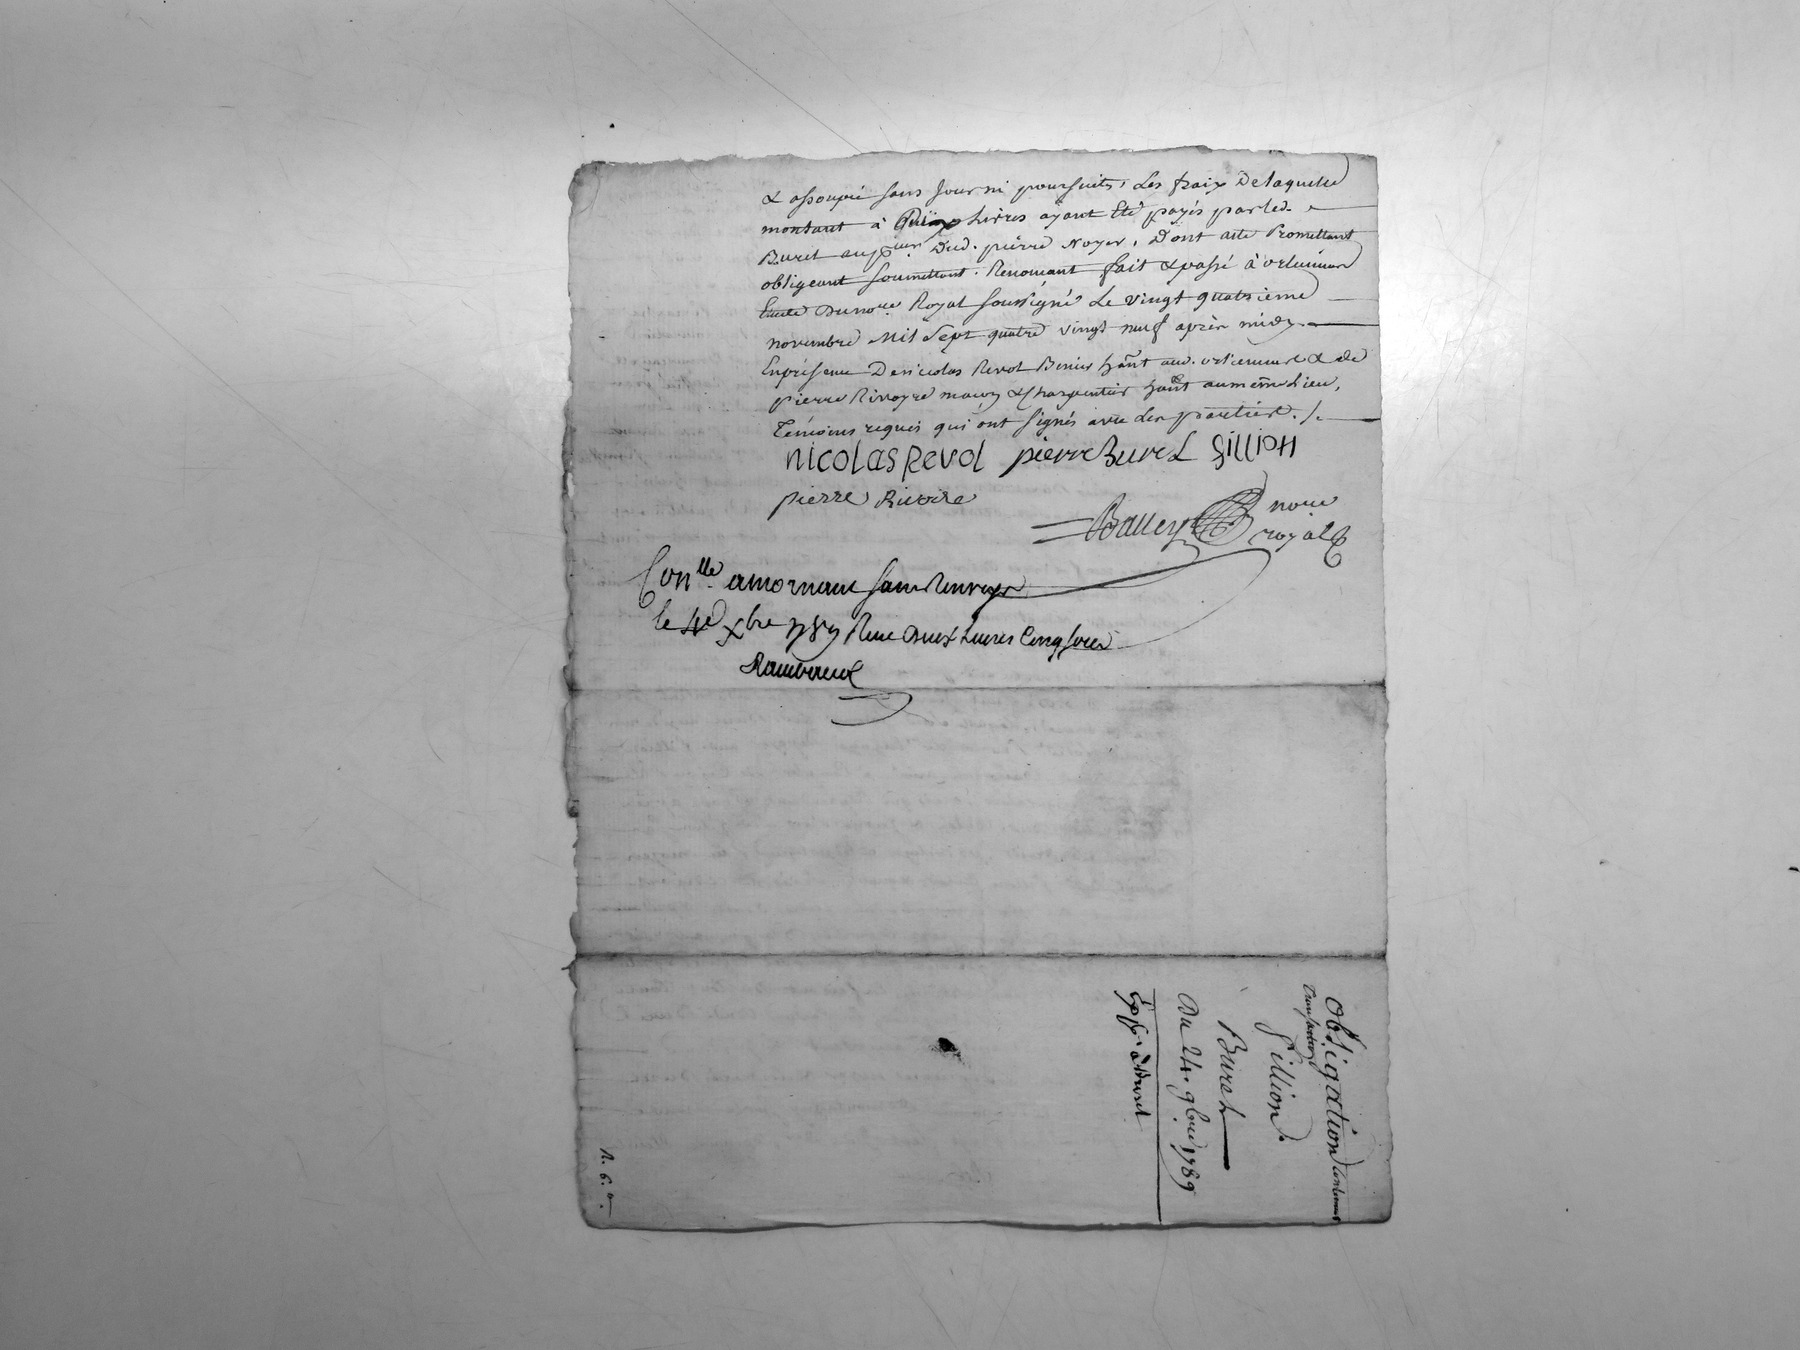 & assoupie sans jour ni poursuite, Les fraix Delaquelle
montant à Livres ayant Eté payés parled.
Buret aux Dud. pierre Noyer, Dont acte Promettant
obligeant soumettant. Renoncant fait & passé à orliennas
Etude Dunore Royal soussigné Le vingt quatrieme
novembre Mil Sept quatre vingt neuf après midy
Enpresence De nicolas Revol habt aud. orliennas & de
pierre Rivoyre maçon & Charpentier habt aumeme Lieu,
Témoins requis qui ont signés avec les parties ./.
nicolas Revol pierre Buret gillion
pierre Rivoire
nore
royal
Conlle amornant sans Renvoy
le 4e Xbre 1789 Reçu Deux Livres Cinq sous
obligation
Transaction
Gillion
Buret
Du 24. 9bre 1789
Expé. à Buret